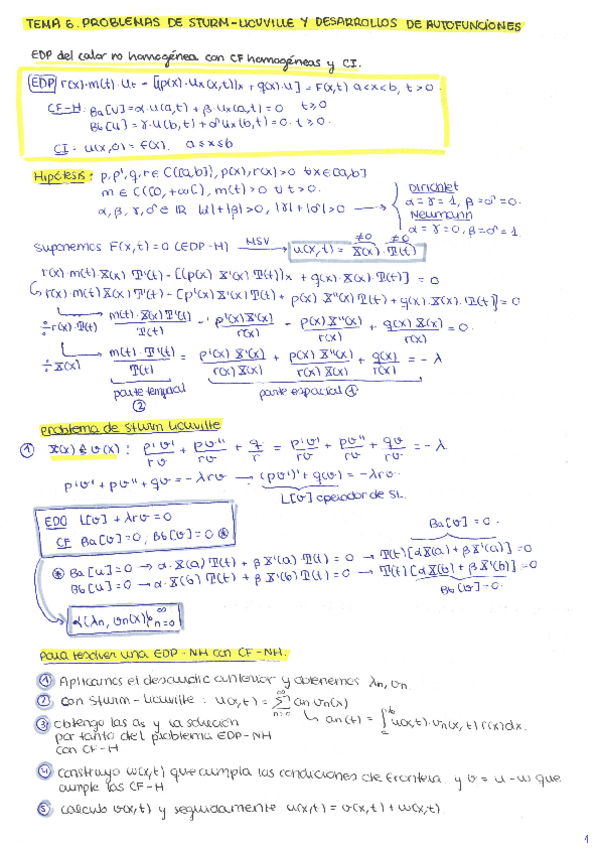 TEMA 6. PROBLEMAS DE STURM-LIOUVILLE Y DESARROLLOS DE AUTOFUNCIONES
EDP del calor no homogénea con CF homogéneas y CI.
EDP r(x)·m(t)·ut - [(p(x)·ux(x,t))x + q(x)·u] = F(x,t) a<x<b, t>0.
CF-H: Ba[u]=α·u(a,t)+β·ux(a,t)=0 t≥0
Bb[u]=γ·u(b,t)+σ·ux(b,t)=0. t≥0.
CI: u(x,0)=f(x). a≤x≤b
Hipótesis: p,p',q,r∈C([a,b]), p(x),r(x)>0 ∀x∈[a,b]
m∈C([0,+∞)), m(t)>0 ∀t>0.
α,β,γ,σ∈ℝ |α|+|β|>0, |γ|+|σ|>0 →
Dirichlet
α=γ=1, β=σ=0.
Neumann
α=γ=0, β=σ=1.
Suponemos F(x,t)=0 (EDP-H) MSV→ u(x,t)=X(x)·T(t)
≠0 ≠0
r(x)·m(t)·X(x)·T'(t) - [(p(x)·X'(x)·T(t))x + q(x)·X(x)·T(t)] = 0
↳ r(x)·m(t)·X(x)·T'(t) - [p'(x)X'(x)T(t) + p(x)·X''(x)T(t) + q(x)·X(x)·T(t)]=0
÷r(x)·T(t) → m(t)·X(x)T'(t)/T(t) - p'(x)X'(x)/r(x) - p(x)·X''(x)/r(x) + q(x)·X(x)/r(x) = 0.
÷X(x) → m(t)·T'(t)/T(t) = p'(x)·X'(x)/r(x)X(x) + p(x)X''(x)/r(x)X(x) + q(x)/r(x) = -λ
parte temporal ②
parte espacial ①
Problema de Sturm Liouville
① X(x) v(x): p'v'/rv + pv''/rv + q/r = p'v'/rv + pv''/rv + qv/rv = -λ
p'v' + pv'' + qv = -λrv → (pv')' + q(v) = -λrv.
L[v] operador de SL.
EDO L[v] + λrv = 0
CF Ba[v]=0, Bb[v]=0 ⊛
Ba[v]=0.
⊛ Ba[u]=0 → α·X(a)T(t) + βX'(a)·T(t) = 0 → T(t)[αX(a)+βX'(a)]=0
Bb[u]=0 → α·X(b)T(t) + βX'(b)T(t)=0 → T(t)[αX(b)+βX'(b)]=0
Bb[v]=0.
{λn, vn(x)}∞n=0
Para resolver una EDP-NH con CF-NH.
① Aplicamos el anterior y obtenemos λn, vn.
② Con Sturm-Liouville: u(x,t) = ∞∑n=0 an vn(x)
↳ an(t) = ∫ab u(x,t)·vn(x,t) r(x)dx.
③ obtengo las as y la solución
por tanto del problema EDP-NH
con CF-H
④ construyo w(x,t) que cumpla las condiciones de frontera y v=u-w que
cumple las CF-H
⑤ calculo v(x,t) y seguidamente u(x,t)=v(x,t)+w(x,t)
1